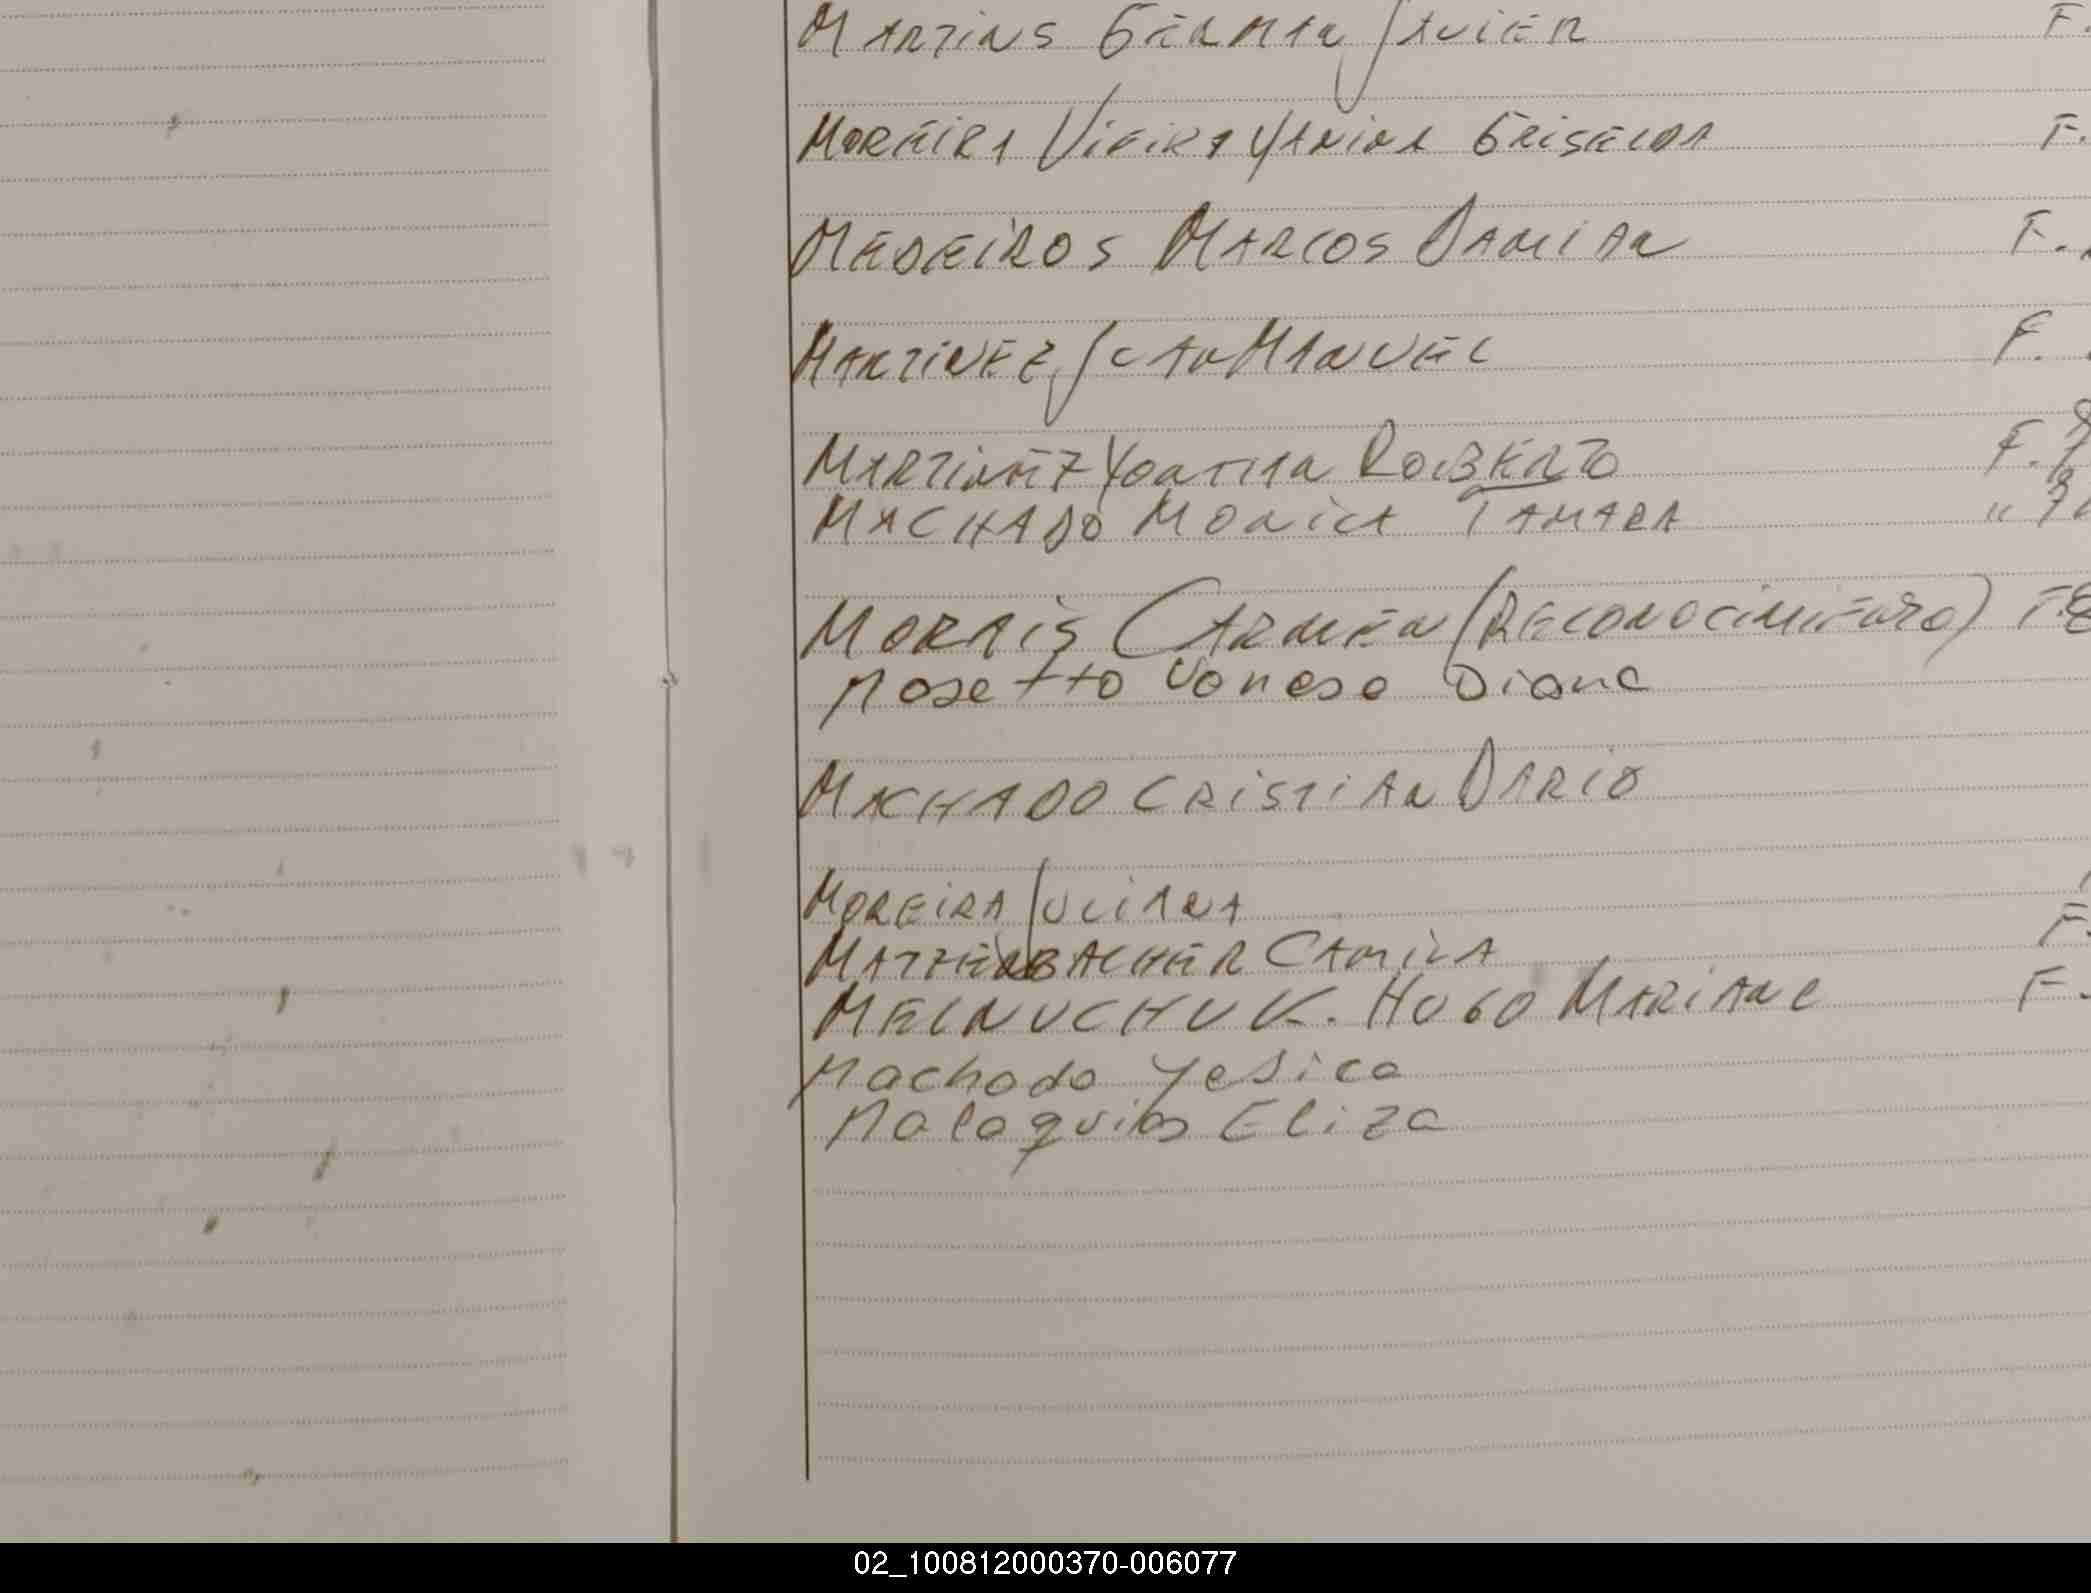 MARTINS GERMAN JAVIER F.
MOREIRA VIEIRA YANINA GRISELDA F.
MEDEIROS MARCOS DAMIAN F.
MARTINEZ JUAN MANUEL F.
MARTINEZ YONATHAN ROBERTO F.
MACHADO MONICA TAMARA "
MORAIS CARMEN (RECONOCIMIENTO) F.
Mosetto Vanesa Diana
MACHADO CRISTIAN DARIO
MOREIRA JULIANA
MATTERBACHER CAMILA F.
MELNUCHUK. HUGO MARIANO F.
Machado Yesica
Malaquias Eliza
02_100812000370-006077